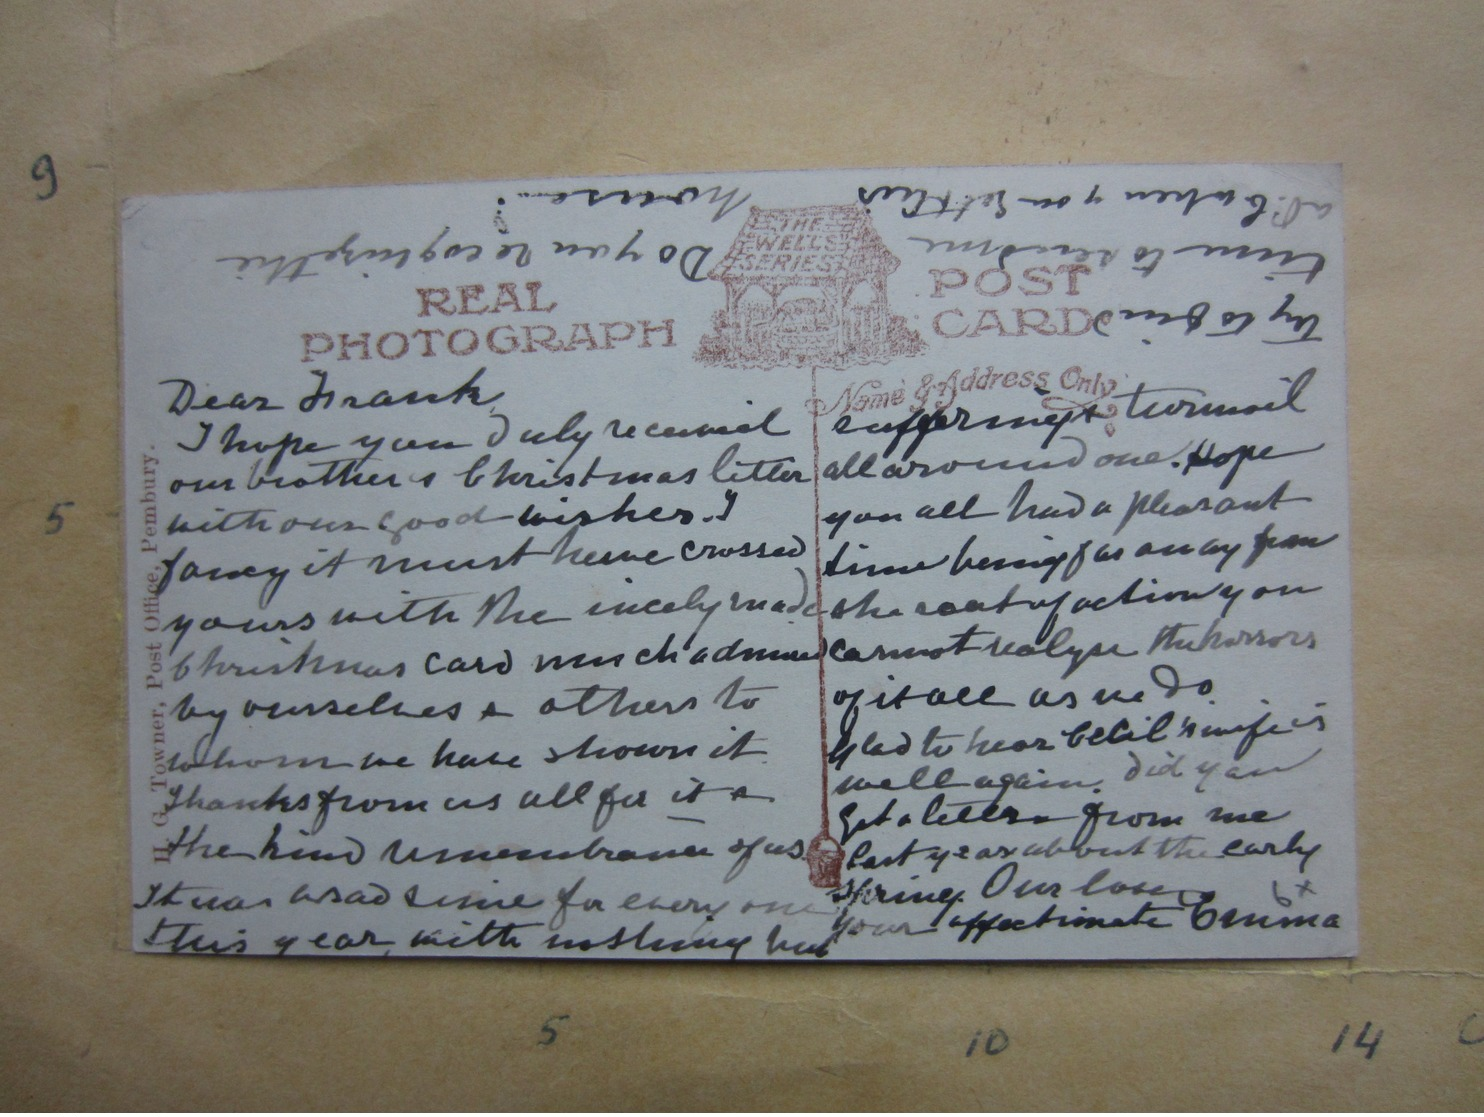 THE
WELLS
SERIES
REAL
PHOTOGRAPH
POST
CARD
Name & Address Only
H. G. Towner, Post Office, Pembury.
Dear Frank
I hope you duly received
our brother's Christmas letter
with our good wishes. I
fancy it must have crossed
yours with the nicely made
Christmas card much admired
by ourselves & others to
whom we have shown it
Thanks from us all for it &
the kind remembrance of us.
It was a sad time for every one
this year, with nothing but
suffering & turmoil
all around one. Hope
you all had a pleasant
time being far away from
the seat of action you
cannot realyse the horrors
of it all as we do
glad to hear Cecil's wife is
well again. did you
get a letter from me
last year about the early
spring. Our love
your affectionate Emma
Try to find
time to send me
when you get this
Do you recognize the
house?
9
5
5
10
14